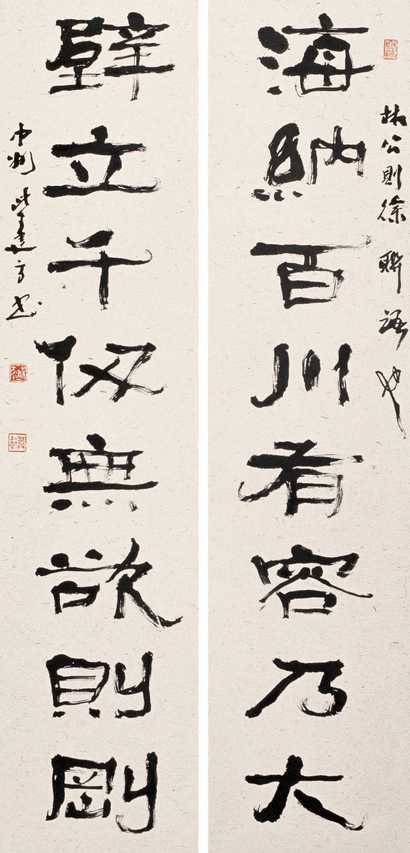 海納百川有容乃大
林公則徐聯語也
壁立千仞無欲則剛